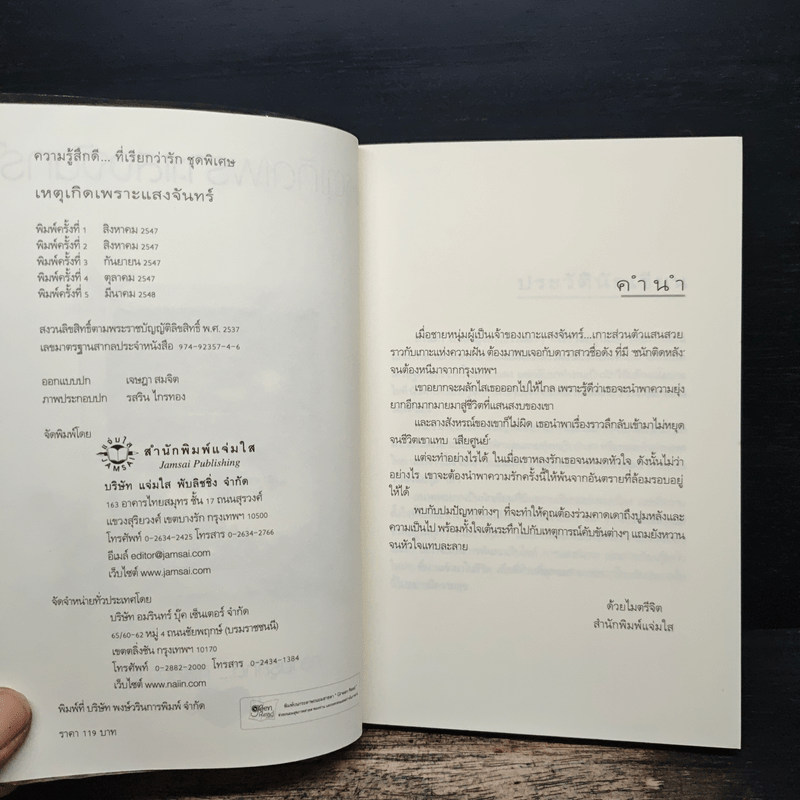 ความรู้สึกดี... ที่เรียกว่ารัก ชุดพิเศษ
เหตุเกิดเพราะแสงจันทร์
พิมพ์ครั้งที่ 1 สิงหาคม 2547
พิมพ์ครั้งที่ 2 สิงหาคม 2547
พิมพ์ครั้งที่ 3 กันยายน 2547
พิมพ์ครั้งที่ 4 ตุลาคม 2547
พิมพ์ครั้งที่ 5 มีนาคม 2548
สงวนลิขสิทธิ์ตามพระราชบัญญัติลิขสิทธิ์ พ.ศ. 2537
เลขมาตรฐานสากลประจำหนังสือ 974-92357-4-6
ออกแบบปก เจษฎา สมจิต
ภาพประกอบปก รสริน ไกรทอง
จัดพิมพ์โดย
แจ่มใส
JAMSAI
สำนักพิมพ์แจ่มใส
Jamsai Publishing
บริษัท แจ่มใส พับลิชชิ่ง จำกัด
163 อาคารไทยสมุทร ชั้น 17 ถนนสุรวงศ์
แขวงสุริยวงศ์ เขตบางรัก กรุงเทพฯ 10500
โทรศัพท์ 0-2634-2425 โทรสาร 0-2634-2766
อีเมล์ editor@jamsai.com
เว็บไซต์ www.jamsai.com
จัดจำหน่ายทั่วประเทศโดย
บริษัท อมรินทร์ บุ๊ค เซ็นเตอร์ จำกัด
65/60-62 หมู่ 4 ถนนชัยพฤกษ์ (บรมราชชนนี)
เขตตลิ่งชัน กรุงเทพฯ 10170
โทรศัพท์ 0-2882-2000 โทรสาร 0-2434-1384
เว็บไซต์ www.naiin.com
พิมพ์ที่ บริษัท พงษ์วรินการพิมพ์ จำกัด
ราคา 119 บาท
Green Read
คำนำ
เมื่อชายหนุ่มผู้เป็นเจ้าของเกาะแสงจันทร์...เกาะส่วนตัวแสนสวย
ราวกับเกาะแห่งความฝัน ต้องมาพบเจอกับดาราสาวชื่อดัง ที่มี 'ชนักติดหลัง'
จนต้องหนีมาจากกรุงเทพฯ
เขาอยากจะผลักไสเธอออกไปให้ไกล เพราะรู้ดีว่าเธอจะนำพาความยุ่ง
ยากอีกมากมายมาสู่ชีวิตที่แสนสงบของเขา
และลางสังหรณ์ของเขาก็ไม่ผิด เธอนำพาเรื่องราวลึกลับเข้ามาไม่หยุด
จนชีวิตเขาแทบ 'เสียศูนย์'
แต่จะทำอย่างไรได้ ในเมื่อเขาหลงรักเธอจนหมดหัวใจ ดังนั้นไม่ว่า
อย่างไร เขาจะต้องนำพาความรักครั้งนี้ให้พ้นจากอันตรายที่ล้อมรอบอยู่
ให้ได้
พบกับปมปัญหาต่างๆ ที่จะทำให้คุณต้องร่วมคาดเดาถึงปูมหลังและ
ความเป็นไป พร้อมทั้งใจเต้นระทึกไปกับเหตุการณ์คับขันต่างๆ แถมยังหวาน
จนหัวใจแทบละลาย
ด้วยไมตรีจิต
สำนักพิมพ์แจ่มใส